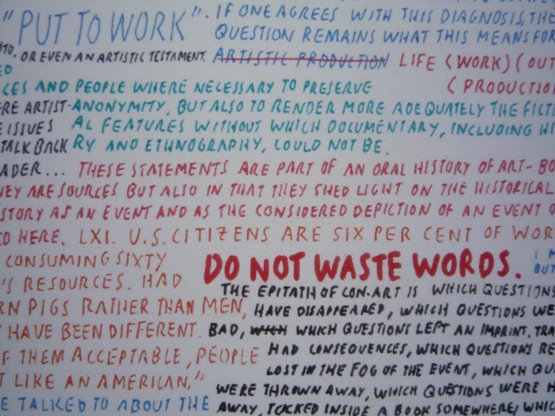 "PUT TO WORK". IF ONE AGREES WITH THIS DIAGNOSIS, THE
QUESTION REMAINS WHAT THIS MEANS FOR
TO, OR EVEN AN ARTISTIC TESTAMENT. ARTISTIC PRODUCTION LIFE (WORK) (OUT
ED
CES AND PEOPLE WHERE NECESSARY TO PRESERVE (PRODUCTIO
ERE ARTIST- ANONYMITY, BUT ALSO TO RENDER MORE ADEQUATELY THE FICTI
E ISSUES AL FEATURES WITHOUT WHICH DOCUMENTARY, INCLUDING HI
TALK BACK RY AND ETHNOGRAPHY, COULD NOT BE.
ADER... THESE STATEMENTS ARE PART OF AN ORAL HISTORY OF ART-BO
EY ARE SOURCES BUT ALSO IN THAT THEY SHED LIGHT ON THE HISTORICAL
STORY AS AN EVENT AND AS THE CONSIDERED DEPICTION OF AN EVENT O
ED HERE. LXI. U.S. CITIZENS ARE SIX PER CENT OF WOR
CONSUMING SIXTY DO NOT WASTE WORDS.
'S RESOURCES. HAD BUT
THE EPITATH OF CON-ART IS WHICH QUESTIONS
RN PIGS RATHER THAN MEN, HAVE DISAPPEARED, WHICH QUESTIONS WE
T HAVE BEEN DIFFERENT. BAD, WHICH WHICH QUESTIONS LEFT AN IMPRINT, TRA
F THEM ACCEPTABLE, PEOPLE HAD CONSEQUENCES, WHICH QUESTIONS RE
T LIKE AN AMERICAN," LOST IN THE FOG OF THE EVENT, WHICH QU
WERE THROWN AWAY, WHICH QUESTIONS WERE H
E TALKED TO ABOUT THE AWAY, TUCKED INSIDE A BOOK SOMEWHERE, WHI